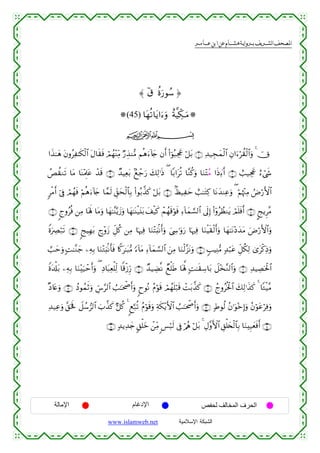 المصحف الشريف برواية هشام عن ابن عامر
﴿ سُورَةُ قٓ ﴾
مَكِّيَّةٌ وَءَايَاتُهَا (45)
بِسْمِ اللَّهِ الرَّحْمَٰنِ الرَّحِيمِ
قٓ ۚ وَٱلْقُرْءَانِ ٱلْمَجِيدِ ۝ بَلْ عَجِبُوٓا۟ أَن جَآءَهُم مُّنذِرٌ مِّنْهُمْ فَقَالَ ٱلْكَٰفِرُونَ هَٰذَا
شَىْءٌ عَجِيبٌ ۝ أَءِذَا مُتْنَا وَكُنَّا تُرَابًا ۖ ذَٰلِكَ رَجْعٌۢ بَعِيدٌ ۝ قَدْ عَلِمْنَا مَا تَنقُصُ
ٱلْأَرْضُ مِنْهُمْ ۖ وَعِندَنَا كِتَٰبٌ حَفِيظٌۢ ۝ بَلْ كَذَّبُوا۟ بِٱلْحَقِّ لَمَّا جَآءَهُمْ فَهُمْ فِىٓ أَمْرٍ
مَّرِيجٍ ۝ أَفَلَمْ يَنظُرُوٓا۟ إِلَى ٱلسَّمَآءِ فَوْقَهُمْ كَيْفَ بَنَيْنَٰهَا وَزَيَّنَّٰهَا وَمَا لَهَا مِن فُرُوجٍ ۝
وَٱلْأَرْضَ مَدَدْنَٰهَا وَأَلْقَيْنَا فِيهَا رَوَٰسِىَ وَأَنۢبَتْنَا فِيهَا مِن كُلِّ زَوْجٍۭ بَهِيجٍ ۝ تَبْصِرَةً
وَذِكْرَىٰ لِكُلِّ عَبْدٍ مُّنِيبٍ ۝ وَنَزَّلْنَا مِنَ ٱلسَّمَآءِ مَآءً مُّبَٰرَكًا فَأَنۢبَتْنَا بِهِۦ جَنَّٰتٍ وَحَبَّ
ٱلْحَصِيدِ ۝ وَٱلنَّخْلَ بَاسِقَٰتٍ لَّهَا طَلْعٌ نَّضِيدٌ ۝ رِّزْقًا لِّلْعِبَادِ ۖ وَأَحْيَيْنَا بِهِۦ بَلْدَةً
مَّيْتًا ۚ كَذَٰلِكَ ٱلْخُرُوجُ ۝ كَذَّبَتْ قَبْلَهُمْ قَوْمُ نُوحٍ وَأَصْحَٰبُ ٱلرَّسِّ وَثَمُودُ ۝ وَعَادٌ
وَفِرْعَوْنُ وَإِخْوَٰنُ لُوطٍ ۝ وَأَصْحَٰبُ ٱلْأَيْكَةِ وَقَوْمُ تُبَّعٍ ۚ كُلٌّ كَذَّبَ ٱلرُّسُلَ فَحَقَّ وَعِيدِ
۝ أَفَعَيِينَا بِٱلْخَلْقِ ٱلْأَوَّلِ ۚ بَلْ هُمْ فِى لَبْسٍ مِّنْ خَلْقٍ جَدِيدٍ ۝
الحرف المخالف لحفص الإدغام الإمالة
الشبكة الإسلامية www.islamweb.net